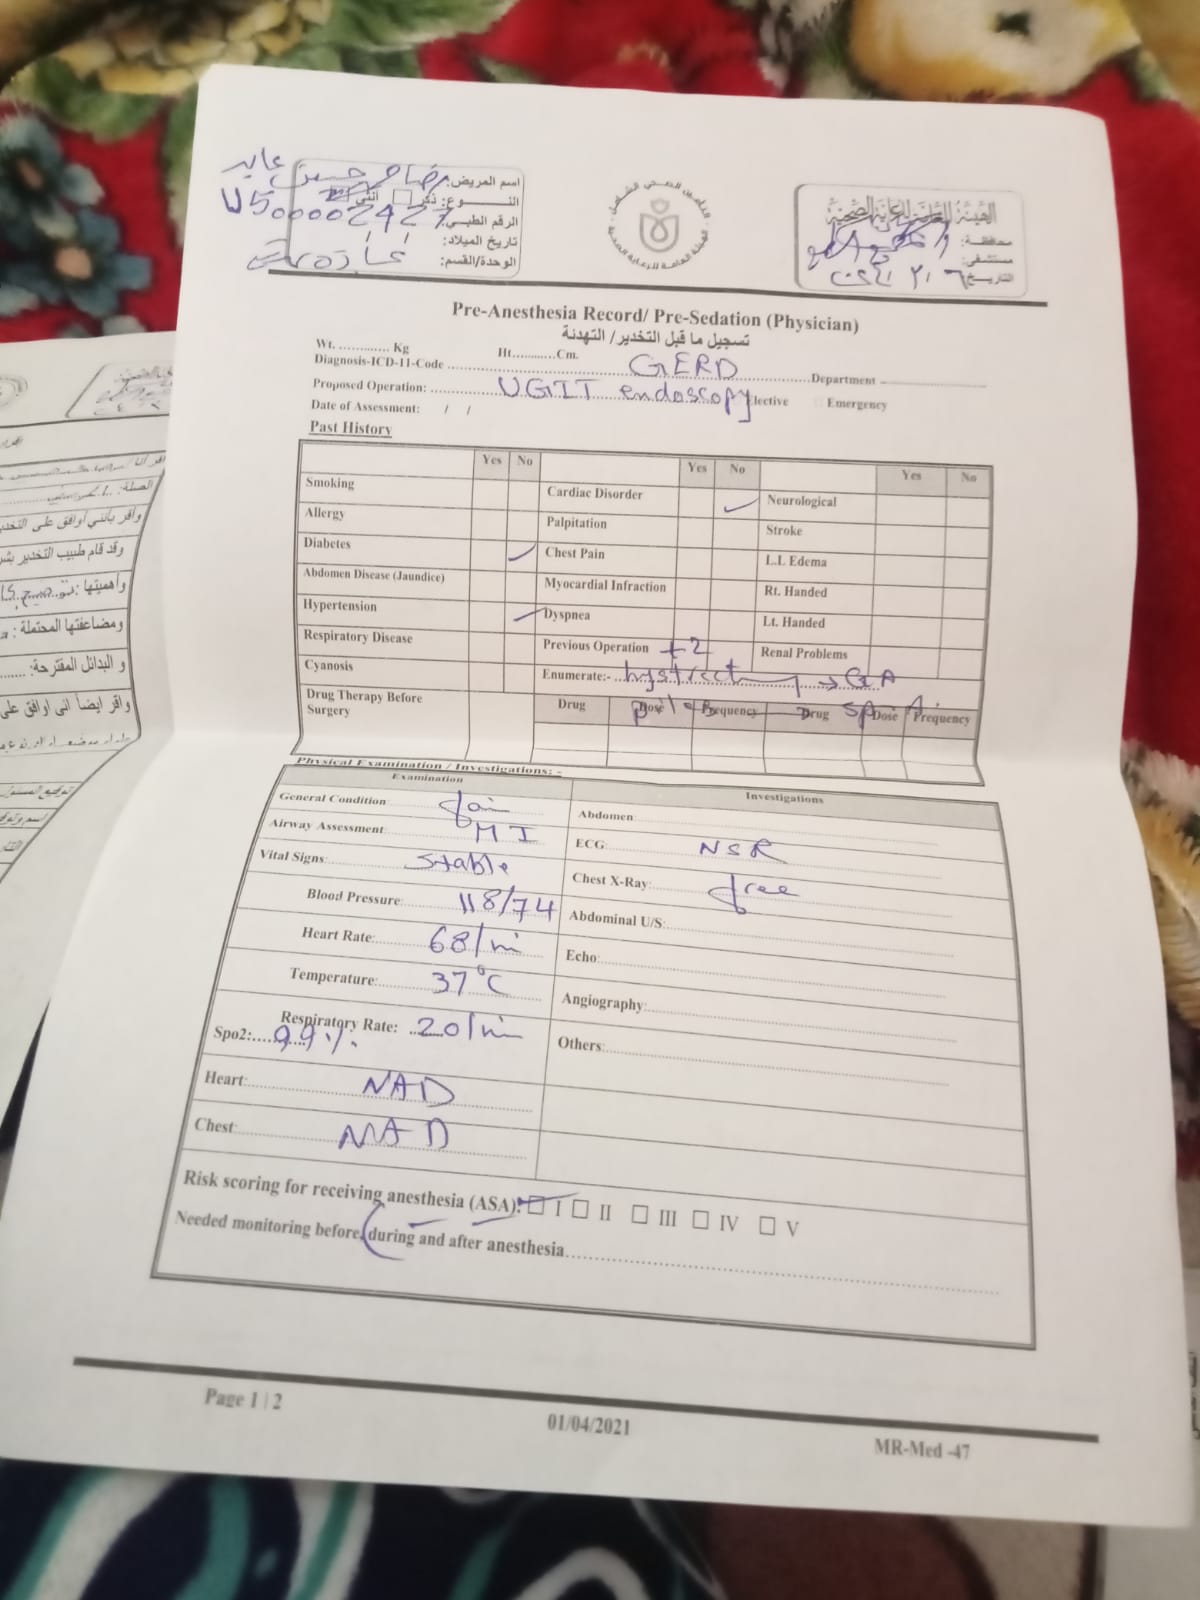 اسم المريض: رضا حسين عابد
النـــــوع: ذكر أنثى
الرقم الطبي:
تاريخ الميلاد:
الوحدة/القسم:
الهيئة العامة للرعاية الصحية
محافظة:
مستشفى:
التاريخ:
Pre-Anesthesia Record/ Pre-Sedation (Physician)
تسجيل ما قبل التخدير/ التهدئة
Wt. ............. Kg Ht............Cm.
Diagnosis-ICD-11-Code GERD Department
Proposed Operation: UGIT endoscopy Elective Emergency
Date of Assessment: / /
Past History
Yes No Yes No Yes No
Smoking Cardiac Disorder Neurological
Allergy Palpitation Stroke
Diabetes Chest Pain L.L Edema
Abdomen Disease (Jaundice) Myocardial Infraction Rt. Handed
Hypertension Dyspnea Lt. Handed
Respiratory Disease Previous Operation +2 Renal Problems
Cyanosis Enumerate:- → GA
Drug Therapy Before Surgery Drug Dose Frequency Drug Dose Frequency
Physical Examination / Investigations: -
Examination Investigations
General Condition Abdomen:
Airway Assessment: M I ECG: NSR
Vital Signs: Stable Chest X-Ray: free
Blood Pressure: 118/74 Abdominal U/S:
Heart Rate: 68/ Echo:
Temperature: 37°C Angiography:
Respiratory Rate: 20/
Spo2: 99% Others:
Heart: NAD
Chest: NAD
Risk scoring for receiving anesthesia (ASA): I II III IV V
Needed monitoring before, during and after anesthesia
Page 1 | 2
01/04/2021
MR-Med -47